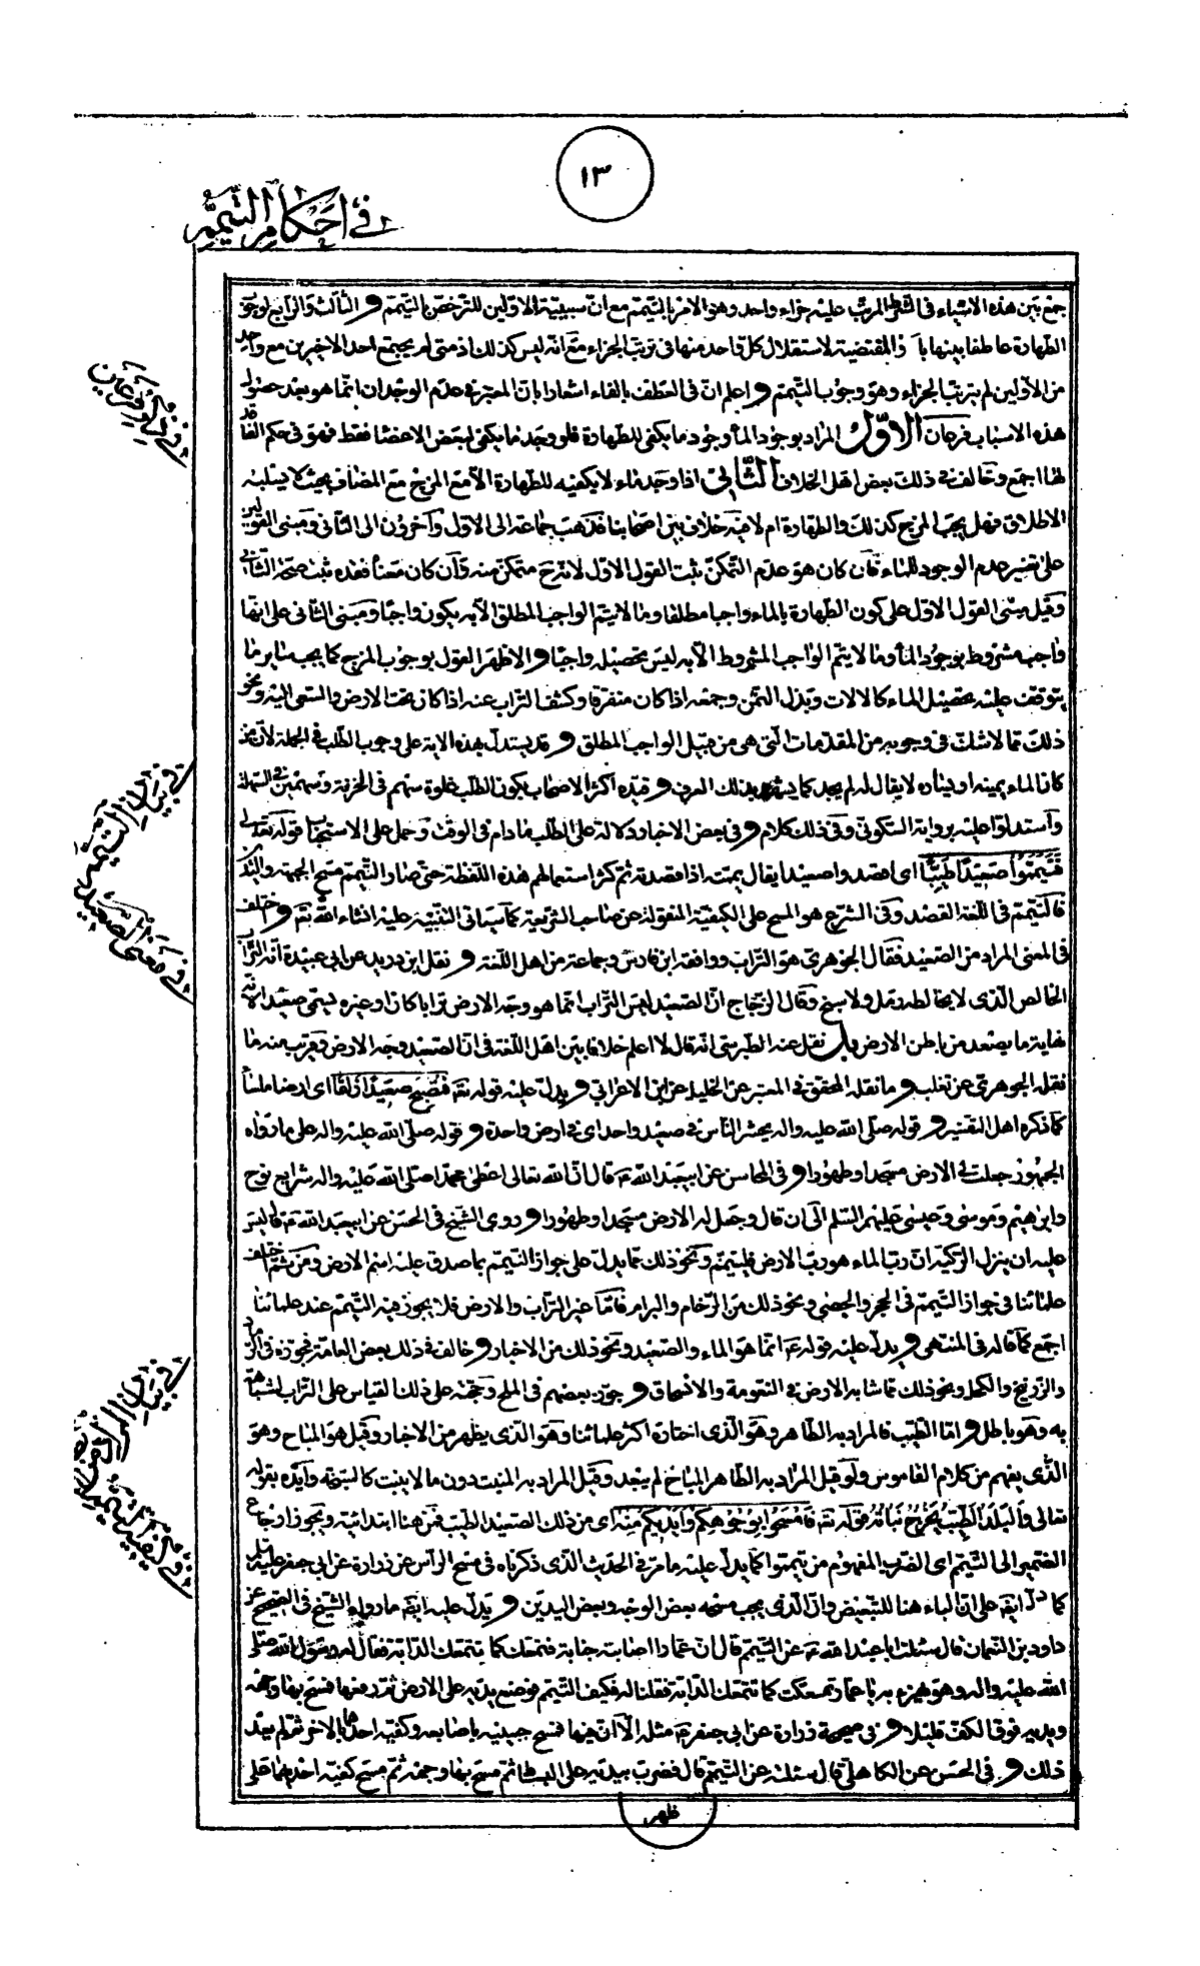 ١٣
في احكام التيمم
جمع بين هذه الاشياء في الشرط المرتب عليه جزاء واحد وهو الامر بالتيمم مع ان سببية الاولين للترخص بالتيمم و الثالث والرابع لوجوب
الطهارة عاطفا بينها باو المقتضية لاستقلال كل واحد منها في ترتب الجزاء مع انه ليس كذلك اذ متى لم يجتمع احد الاخيرين مع واحد
من الاولين لم يترتب الجزاء وهو وجوب التيمم و اعلم ان في العطف بالفاء اشعارا بان المعتبر في عدم الوجدان انما هو بعد حصول
هذه الاسباب فرعان الاول المراد بوجود الماء وجود ما يكفي للطهارة فلو وجد ما يكفي لبعض الاعضاء فقط فهو في حكم الفاقد
لها اجمع و خالف في ذلك بعض اهل الخلاف الثاني اذا وجد ماء لا يكفيه للطهارة الا مع المزج مع المضاف بحيث لا يسلبه
الاطلاق فهل يجب المزج كذلك والطهارة ام لا فيه خلاف بين اصحابنا فذهب جماعة الى الاول وآخرون الى الثاني ومبنى القولين
على تفسير عدم الوجود للماء فان كان هو عدم التمكن ثبت القول الاول لانه ح متمكن منه وان كان معناه فقده ثبت صحة الثاني
وقيل مبنى القول الاول على كون الطهارة بالماء واجبا مطلقا وما لا يتم الواجب المطلق الا به يكون واجبا ومبنى الثاني على انها
واجب مشروط بوجود الماء وما لا يتم الواجب المشروط الا به ليس تحصيله واجبا و الاظهر القول بوجوب المزج كما يجب ساير ما
يتوقف عليه تحصيل الماء كالالات وبذل الثمن وجمعه اذا كان متفرقا وكشف التراب عنه اذا كان تحت الارض والسعي اليه ونحو
ذلك مما لا شك في وجوبه من المقدمات التي هي من قبيل الواجب المطلق و قد يستدل بهذه الاية على وجوب الطلب في الجملة لان من
كان الماء يمينه او يساره لا يقال له لم يجد كما يشهد بذلك العرف و قيده اكثر الاصحاب بكون الطلب غلوة سهم في الحزنة وسهمين في السهلة
واستدلوا عليه برواية السكوني وفي ذلك كلام و في بعض الاخبار دلالة على الطلب ما دام في الوقت وحمل على الاستحباب قوله تعالى
فتيمموا صعيدا طيبا اي اقصدوا صعيدا يقال يممته اذا قصدته ثم كثر استعمالهم هذه اللفظة حتى صار التيمم مسح الجبهة واليدين
فالتيمم في اللغة القصد وفي الشرع هو المسح على الكيفية المنقولة عن صاحب الشريعة كما سياتي التنبيه عليه انشاء الله تعالى و اختلف
في المعنى المراد من الصعيد فقال الجوهري هو التراب ووافقه ابن فارس وجماعة من اهل اللغة و نقل ابن دريد عن ابي عبيدة انه التراب
الخالص الذي لا يخالطه رمل ولا سبخ وقال الزجاج ان الصعيد ليس التراب انما هو وجه الارض ترابا كان او غيره سمي صعيدا لانه
نهاية ما يصعد من باطن الارض بل نقل عنه الطبرسي انه قال لا اعلم خلافا بين اهل اللغة في ان الصعيد وجه الارض وقريب منه ما
نقله الجوهري عن تغلب و ما نقله المحقق في المعتبر عن الخليل عن ابن الاعرابي و يدل عليه قوله تعالى فتصبح صعيدا زلقا اي ارضا ملساء
كما ذكره اهل التفسير و قوله صلى الله عليه واله يحشر الناس في صعيد واحد اي في ارض واحدة و قوله صلى الله عليه واله على ما رواه
الجمهور جعلت لي الارض مسجدا وطهورا و في المحاسن عن ابيعبد الله ع قال ان الله تعالى اعطى محمدا صلى الله عليه واله شرايع نوح
وابراهيم وموسى وعيسى عليهم السلم الى ان قال وجعل له الارض مسجدا وطهورا و روى الشيخ في الحسن عن ابيعبد الله ع قال ليس
عليه ان ينزل الركية ان رب الماء هو رب الارض فليتيمم ونحو ذلك مما يدل على جواز التيمم بما صدق عليه اسم الارض ومن ثم اختلف
علمائنا في جواز التيمم في الحجر والجص ونحو ذلك من الرخام والبرام فاما غير التراب والارض فلا يجوز فيه التيمم عند علمائنا
اجمع كما قاله في المنتهى و يدل عليه قوله ع انما هو الماء والصعيد ونحو ذلك من الاخبار و خالف في ذلك بعض العامة فجوزه في الرماد
والزرنيخ والكحل ونحو ذلك مما شابه الارض في النعومة والانسحاق و جوز بعضهم في الملح وحجته على ذلك القياس على التراب لشباهته
به وهو باطل و اما الطيب فالمراد به الطاهر وهو الذي اختاره اكثر علمائنا وهو الذي يظهر من الاخبار وقيل هو المباح وهو
الذي يفهم من كلام القاموس ولو قيل المراد به الطاهر المباح لم يبعد وقيل المراد به المنبت دون ما لا ينبت كالسبخة وايده بقوله
تعالى والبلد الطيب يخرج نباته قوله تعالى فامسحوا بوجوهكم وايديكم منه اي من ذلك الصعيد الطيب فمن هنا ابتدائية ويجوز ارجاع
الضمير الى التيمم اي الضرب المفهوم من تيمموا كما يدل عليه ما مر في الحديث الذي ذكرناه في مسح الراس عن زرارة عن ابي جعفر عليه السلم
كما دل ايضا على ان الباء هنا للتبعيض وان الذي يجب مسحه بعض الوجه وبعض اليدين و يدل عليه ايضا ما رواه الشيخ في الصحيح عن
داود بن النعمان قال سئلت ابا عبد الله ع عن التيمم قال ان عمارا اصابته جنابة فتمعك كما تتمعك الدابة فقال له رسول الله صلى
الله عليه واله وهو يهزء به يا عمار تمعكت كما تتمعك الدابة فقلنا له فكيف التيمم فوضع يديه على الارض ثم رفعها فمسح بها وجهه
ويديه فوق الكف قليلا و في صحيحة زرارة عن ابي جعفر ع مثله الا ان فيها فمسح جبينيه باصابعه وكفيه احدهما بالاخرى ثم لم يعد
ذلك و في الحسن عن الكاهلي قال سئلته عن التيمم قال فضرب بيديه على البساط ثم مسح بها وجهه ثم مسح كفيه احديهما على
ظهر
في ذكر فرعين
في بيان التيمم
في معنى الصعيد